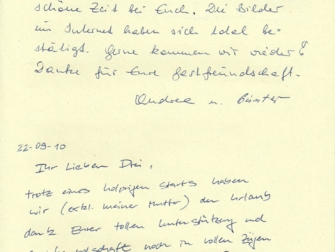 schöne Zeit bei Euch. Die Bilder
im Internet haben sich total be-
stätigt. Gerne kommen wir wieder!
Danke für Eure Gastfreundschaft.
Andrea u. Günter
22-09-10
Ihr Lieben Drei,
trotz eines holprigen Starts haben
wir (exkl. meiner Mutter) den Urlaub
dank Eurer tollen Unterstützung und
noch in vollen Zügen